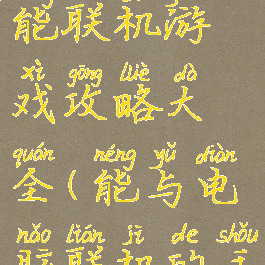 能联机游
xì gōng lüè dà
戏攻略大
quán néng yǔ diàn
全(能与电
nǎo lián jī de shǒu
脑联机的手